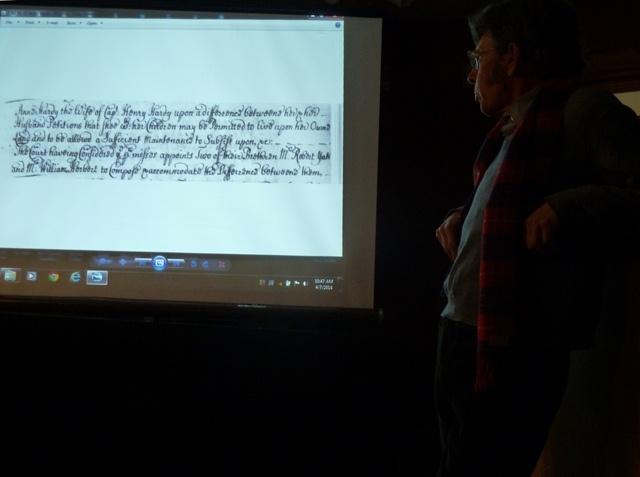 File Print E-mail Burn Open
Anne Hardy the Wife of Capt Henry Hardy upon a difference betweene her & her
Husband Petitions that shee wth her Children may be Permitted to Live upon her Owne
Land and to be allowed a Sufficient Maintenance to Subsist upon, &c:
The Court haveing Considered ye pmisses appoints Two of their Brethren Mr. Robert
and Mr. William Herbert to Compose & accommodate the Difference betweene them.
10:47 AM
4/7/2014